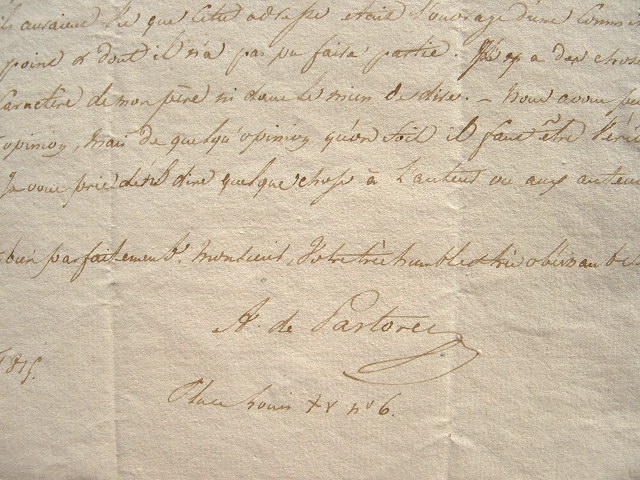 ils auraient lu que cette adresse etait l'ouvrage d'une Commis
point & dont il n'a pas pu faire partie. Il y a des chose
Caractère de mon père ni dans le mien de dire. — Nous avons
opinion, mais de quelqu'opinion qu'on soit il faut être
Je vous prie de dire quelque chose à l'auteur ou aux auteu
bien parfaitement, Monsieur, Votre très humble & très obéissant
A. de Pastoret
1815.
Place Louis XV nº 6.